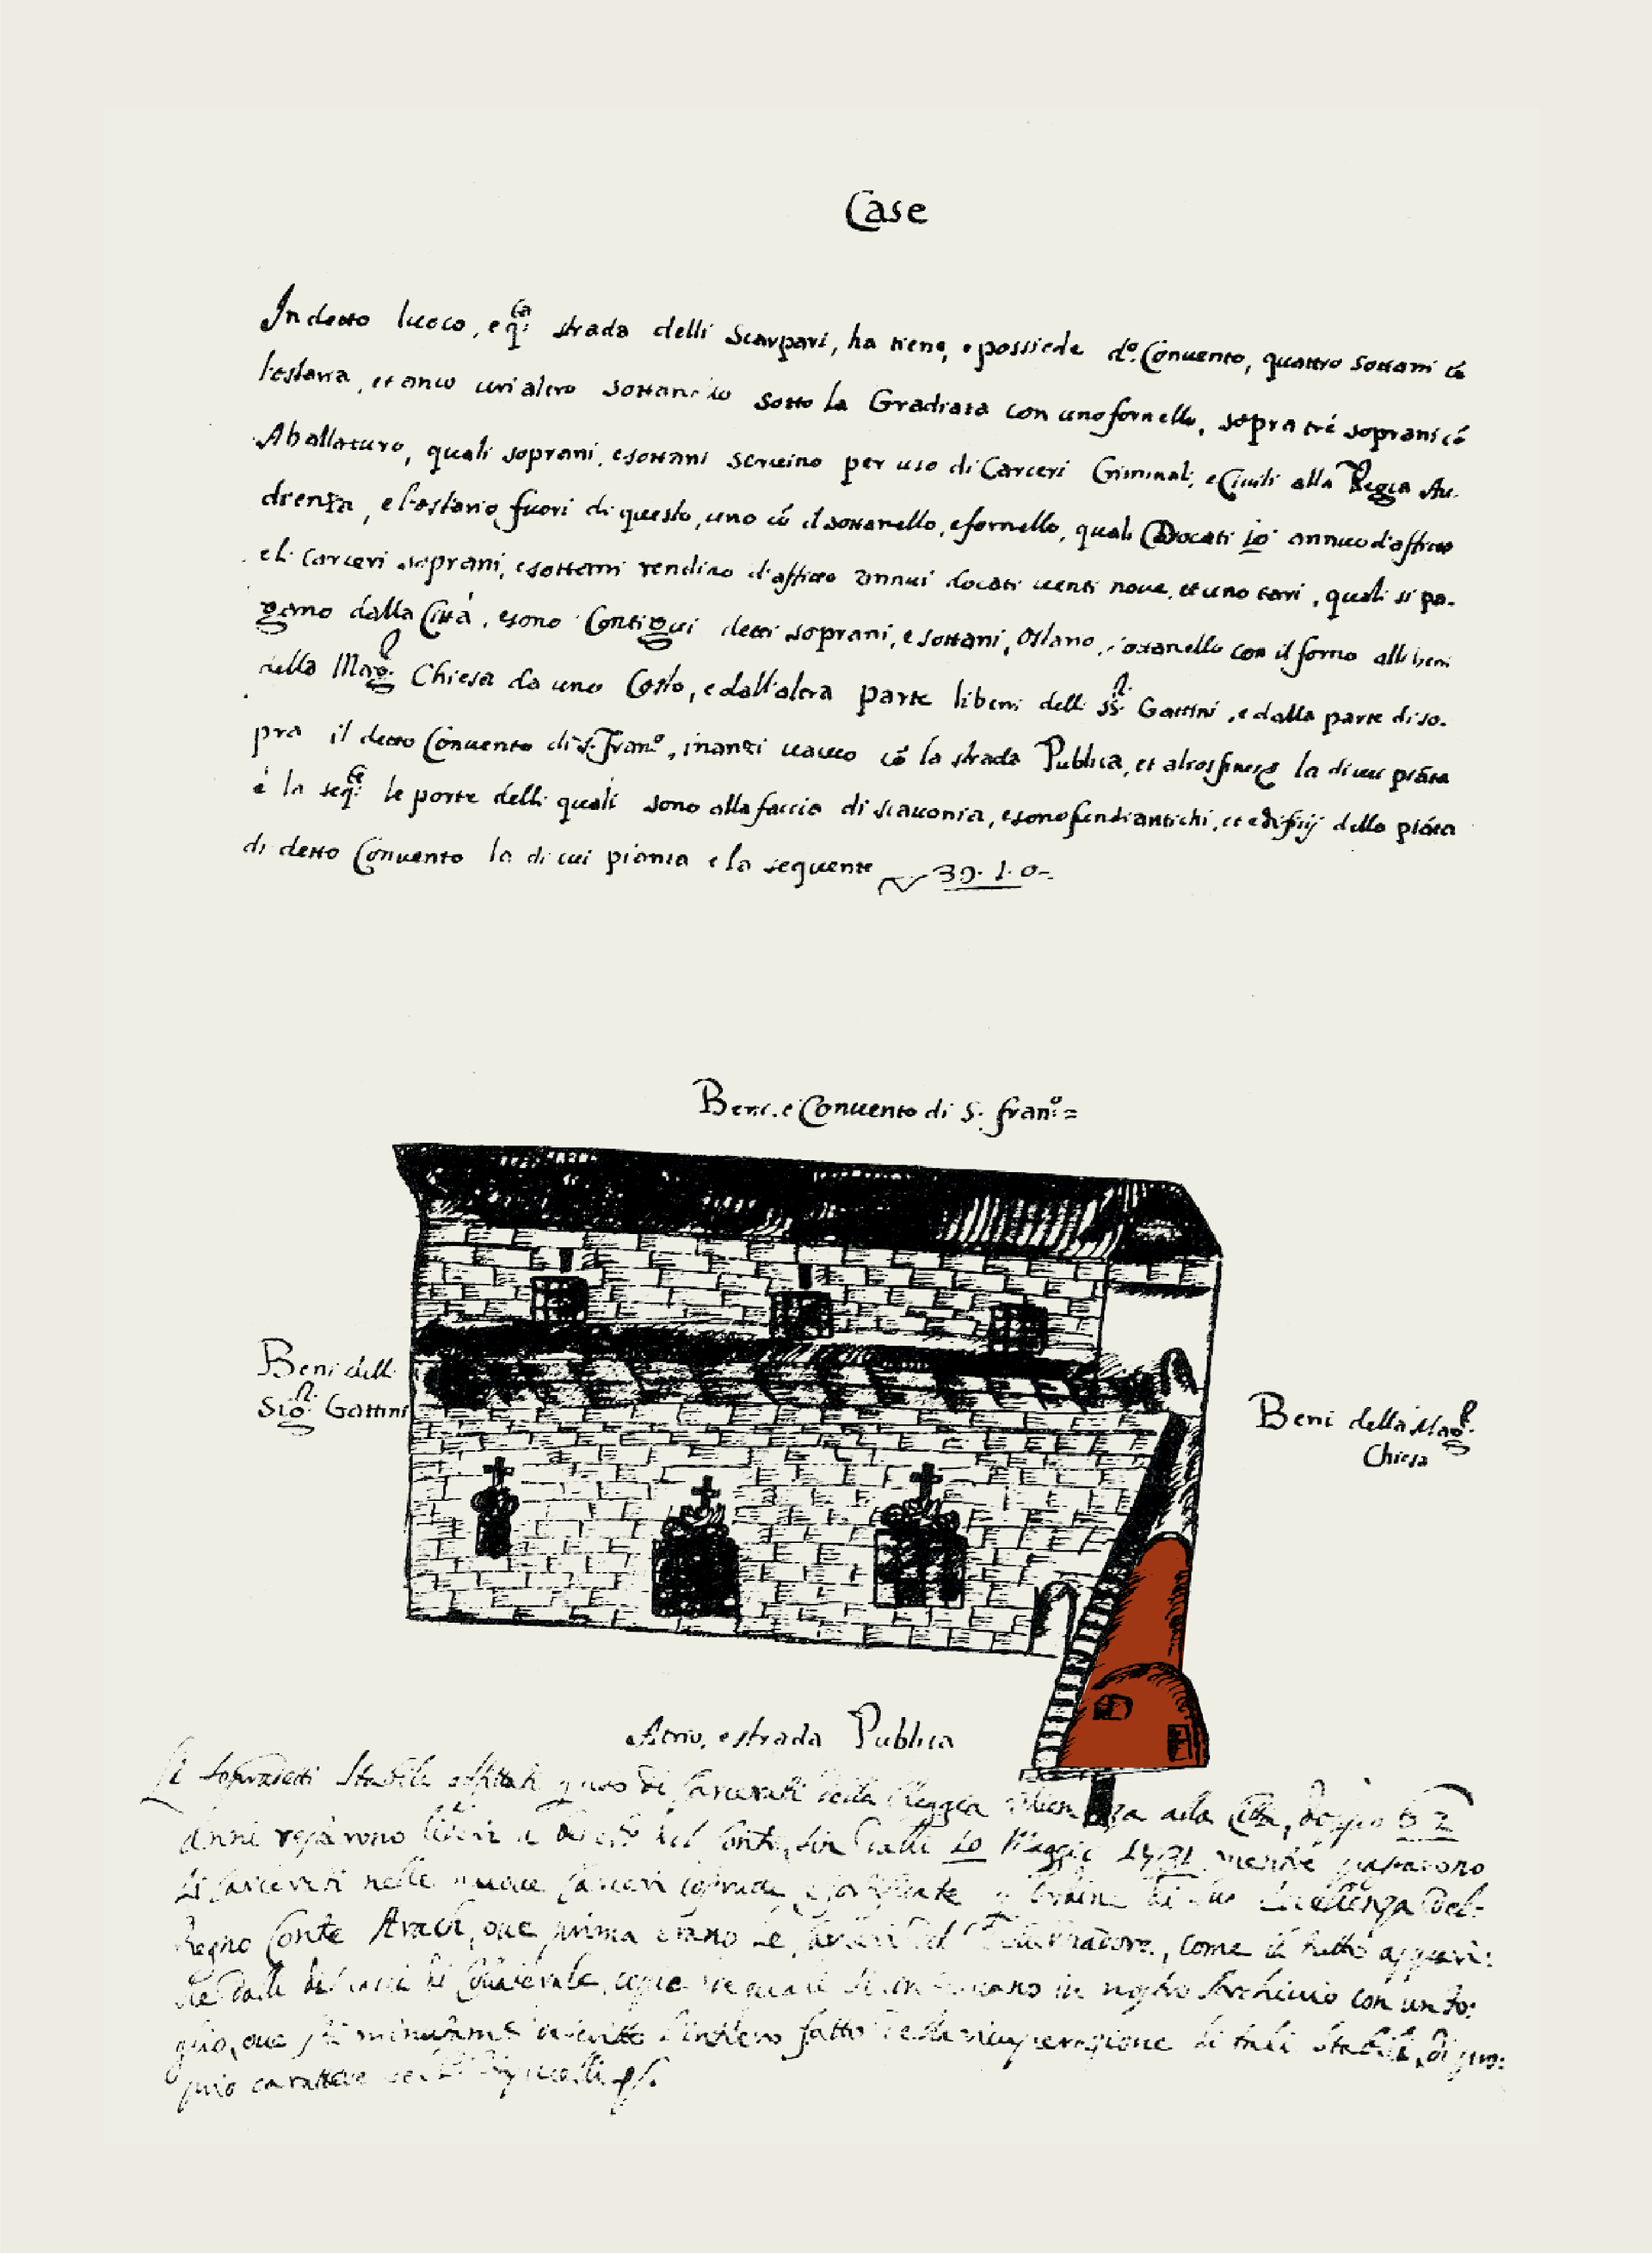 Case
In detto luoco, e q:ta strada delli Scarpari, ha tiene, e possiede d:o Convento, quattro sottani cõ
l'ostaria, et anco un'altro sottanello sotto la Gradiata con uno fornello, sopra tré soprani cõ
Aballaturo, quali soprani, e sottani servino per uso di Carceri Criminali, e Civili alla Regia Au-
dienza, e l'ostario fuori di questo, uno cõ il sottanello, e fornello, quali Docati 10 annuo d'affitto
e li carceri soprani, e sottani rendino d'affitto annui docati venti nove, et uno tarì, quali si pa-
gano dalla Città, e sono Contigui detti soprani, e sottani, ostario, sottanello con il forno alli beni
della Mag:e Chiesa da uno Costo, e dall'altra parte li beni delli SS:ri Gattini, e dalla parte di so-
pra il detto Convento di S. Fran:o, inanzi vacuo cõ la strada Publica, et altri la di cui piãta
è la seq:te le porte delli quali sono alla faccia di scavonia, e sono fundi antichi, et edifitij dello piãta
di detto Convento la di cui pianta e la sequente 39. 1. 0-
Beni, e Convento di S. Fran:o =
Beni delli
Sig:ri Gattini
Beni della Mag:e
Chiesa
Atrio, e strada Publica
Li sopradetti Stabili affittati di Carcerati della Reggia Udienza alla Città, doppo
Anni restarono del Conto, sin dalli 10 Maggio 1731 mentre passarono
li Carcerati nelle nuove Carceri ordine di Sua Eccellenza del
Regno Conte Arach, ove prima erano le Carceri del Governadore, come il tutto appari:
sce dalli di copie se in nostro Archivio con un fo:
glio, ove stà minutam:e descritto l'intiero fatto della ricuperazione di tali Stabili, di pro:
prio carattere